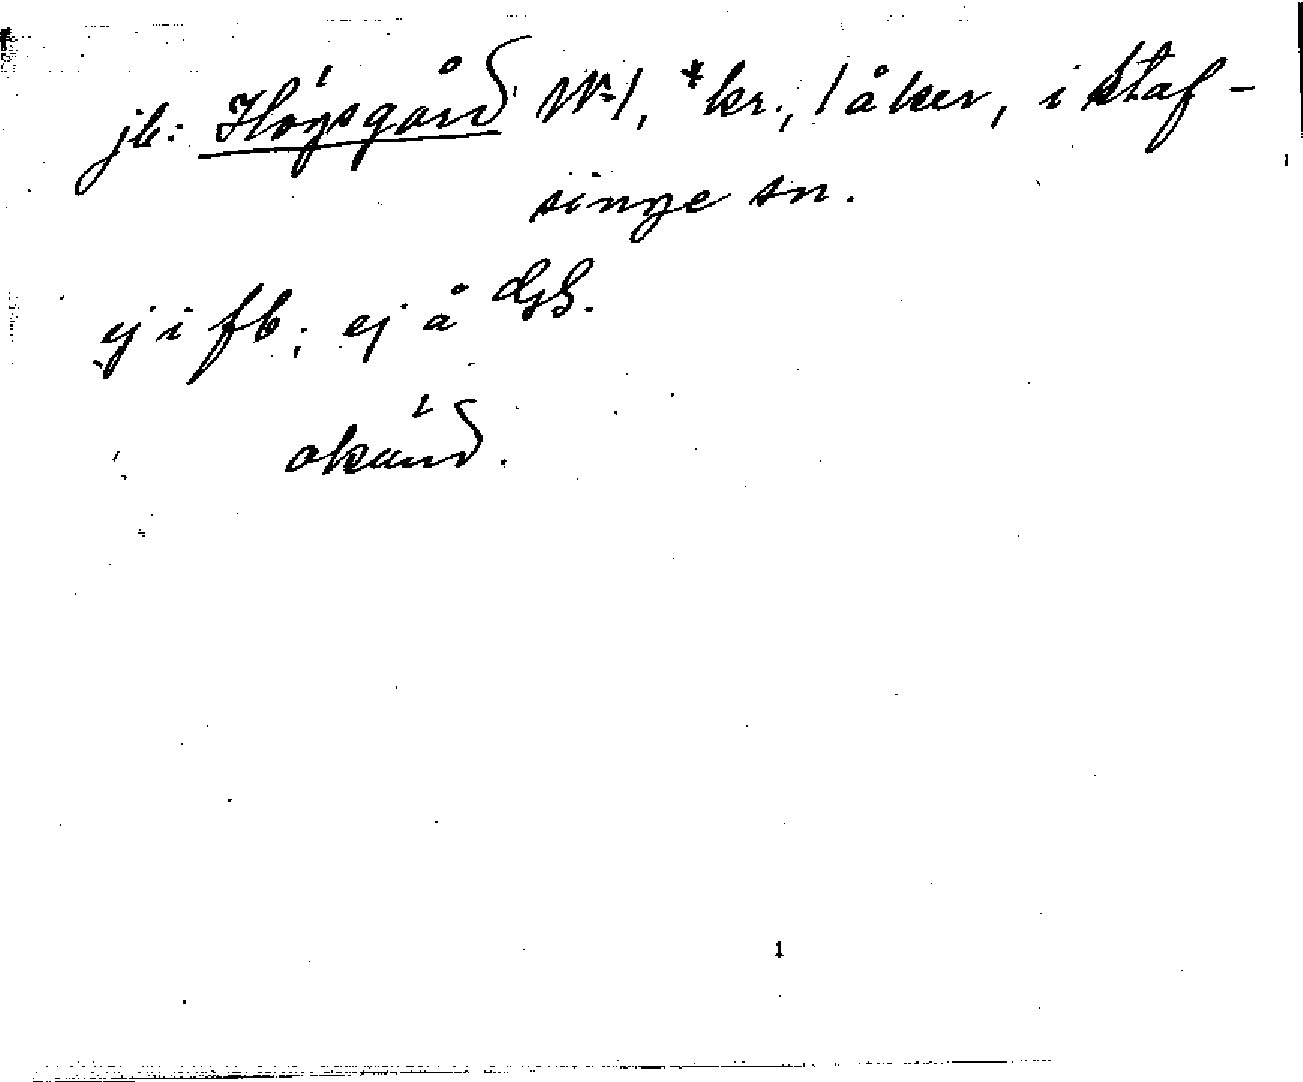 jb: Högsgård N:1, *kr., 1 åker, i Staf-
singe sn.
ej i fb; ej å GS.
okänd.
1